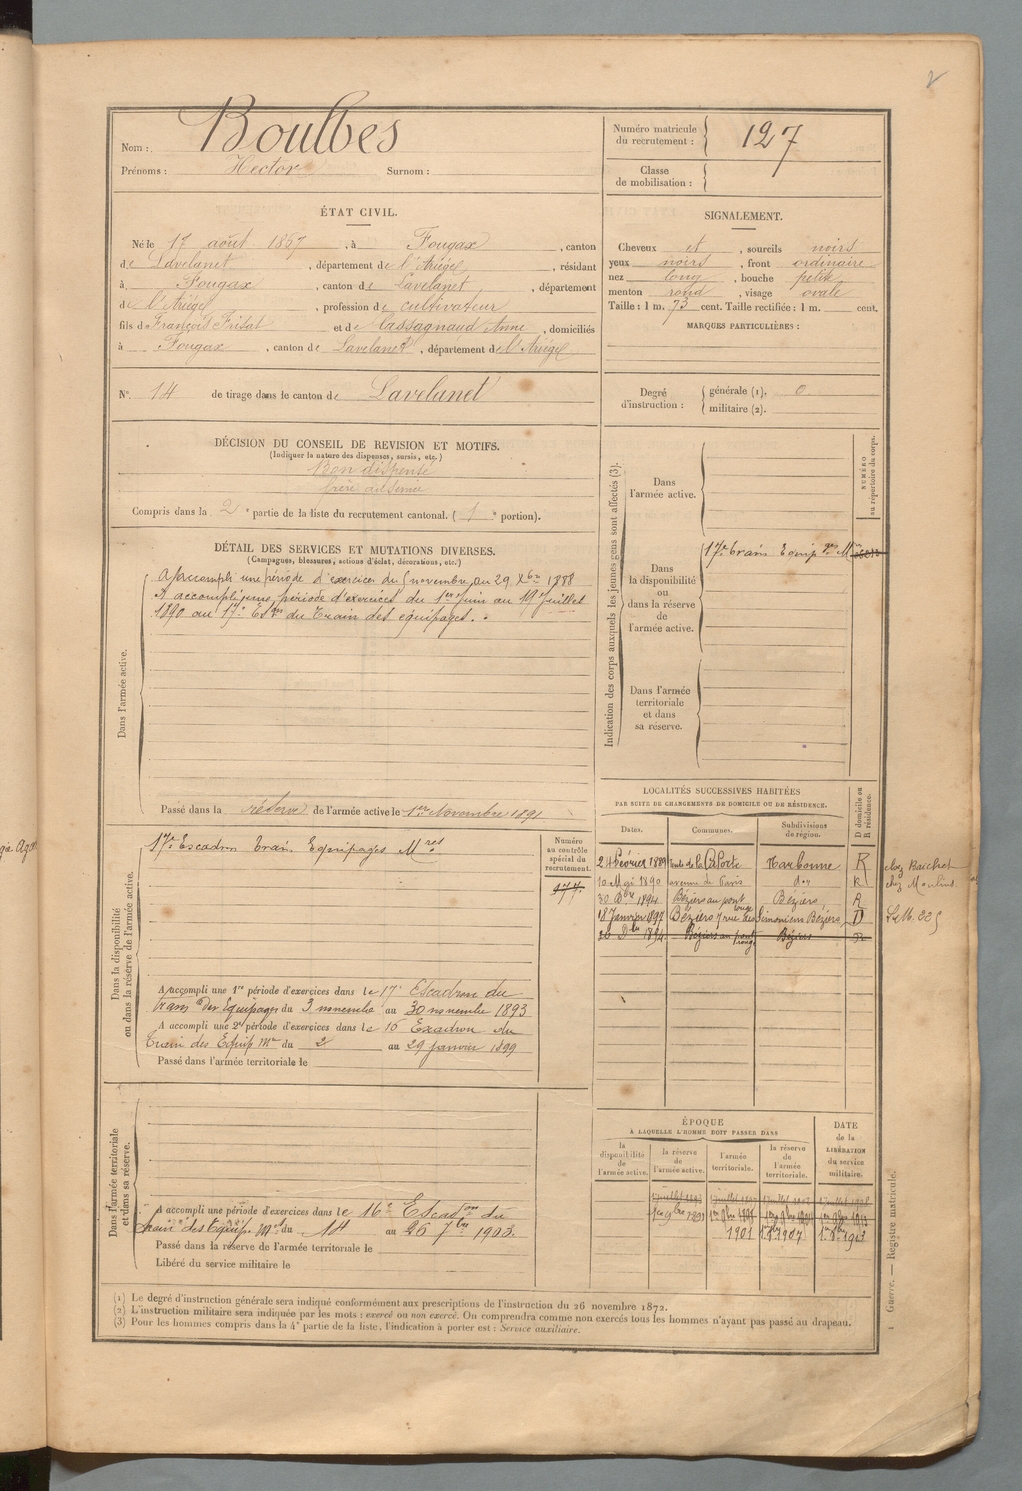 Nom : Boulbes
Prénoms : Hector Surnom :
Numéro matricule du recrutement : 127
Classe de mobilisation :
ÉTAT CIVIL.
Né le 17 août 1867, à Fougax, canton
de Lavelanet, département de l'Ariége, résidant
à Fougax, canton de Lavelanet, département
de l'Ariége, profession de cultivateur
fils de François et de Cassagnaud Anne, domiciliés
à Fougax, canton de Lavelanet, département de l'Ariége
N° 14 de tirage dans le canton de Lavelanet
SIGNALEMENT.
Cheveux et, sourcils noirs
yeux noirs, front ordinaire
nez long, bouche petite
menton rond, visage ovale
Taille : 1 m. 73 cent. Taille rectifiée : 1 m. cent.
MARQUES PARTICULIÈRES :
Degré d'instruction : générale (1). 0
militaire (2).
DÉCISION DU CONSEIL DE REVISION ET MOTIFS.
(Indiquer la nature des dispenses, sursis, etc.)
Bon dispensé
frère au service
Compris dans la 2e partie de la liste du recrutement cantonal. ( 1e portion).
DÉTAIL DES SERVICES ET MUTATIONS DIVERSES.
(Campagnes, blessures, actions d'éclat, décorations, etc.)
Dans l'armée active.
A accompli une période d'exercices du novembre au 29 Xbre 1888
A accompli une période d'exercices du 1er juin au 19 juillet
1890 au 17e Esc du Train des équipages.
Passé dans la réserve de l'armée active le 1er Novembre 1891
Indication des corps auxquels les jeunes gens sont affectés (3).
NUMÉRO au répertoire du corps.
Dans l'armée active.
Dans la disponibilité ou dans la réserve de l'armée active.
17e train Equip ges Mres
Dans l'armée territoriale et dans sa réserve.
Dans la disponibilité ou dans la réserve de l'armée active.
17e Escadron train Equipages Mres
Numéro au contrôle spécial du recrutement.
477
A accompli une 1re période d'exercices dans le 17e Escadron du
train des Equipages du 3 novembre au 30 novembre 1893
A accompli une 2e période d'exercices dans le 16 Escadron du
Train des Equip Mres du 2 au 29 janvier 1899
Passé dans l'armée territoriale le
LOCALITÉS SUCCESSIVES HABITÉES
PAR SUITE DE CHANGEMENTS DE DOMICILE OU DE RÉSIDENCE.
Dates. Communes. Subdivisions de région. D domicile ou R résidence.
24 février 1889 Narbonne R chez
10 Mai 1890 avenue de Paris do R chez Moulins
30 Dbre 1894 Béziers au pont rouge Béziers R
18 Janvier 1897 Béziers 7 rue des Simoniens Béziers D
30 Dbre 1894 Béziers au pont rouge Béziers R
Dans l'armée territoriale et dans sa réserve.
A accompli une période d'exercices dans le 16e Escadron du
train des Equip. Mres du 14 au 26 7bre 1903.
Passé dans la réserve de l'armée territoriale le
Libéré du service militaire le
ÉPOQUE
A LAQUELLE L'HOMME DOIT PASSER DANS
la disponibilité de l'armée active. la réserve de l'armée active. l'armée territoriale. la réserve de l'armée territoriale. DATE de la LIBÉRATION du service militaire.
1er 9bre 1891
1901 1907
(1) Le degré d'instruction générale sera indiqué conformément aux prescriptions de l'instruction du 26 novembre 1872.
(2) L'instruction militaire sera indiquée par les mots : exercé ou non exercé. On comprendra comme non exercés tous les hommes n'ayant pas passé au drapeau.
(3) Pour les hommes compris dans la 4e partie de la liste, l'indication à porter est : Service auxiliaire.
1 Guerre. — Registre matricule.